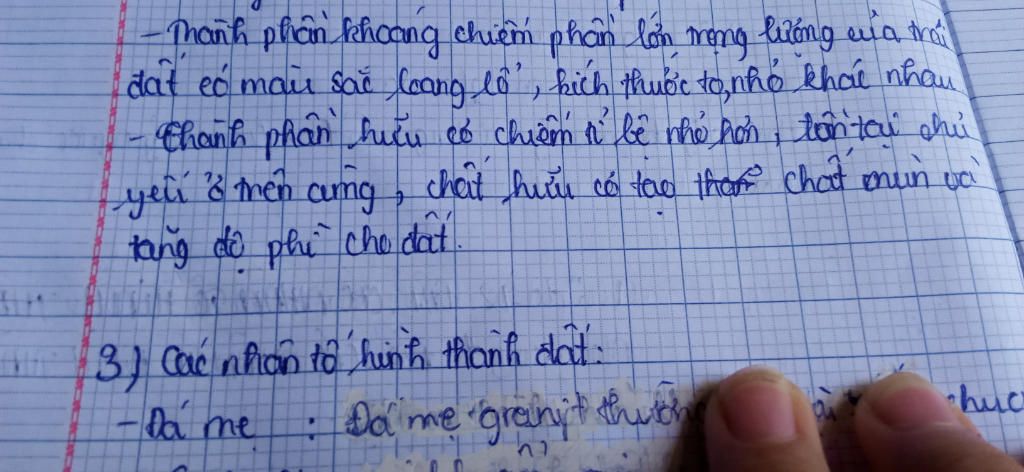 - Thành phần khoáng chiếm phần lớn trọng lượng của trái
đất có màu sắc loang lổ, kích thước to, nhỏ khác nhau
- Thành phần hữu cơ chiếm tỉ lệ nhỏ hơn, tồn tại chủ
yếu ở trên cùng, chất hữu cơ tạo chất mùn và
tăng độ phì cho đất.
3) Các nhân tố hình thành đất:
- Đá mẹ : Đá mẹ granyt